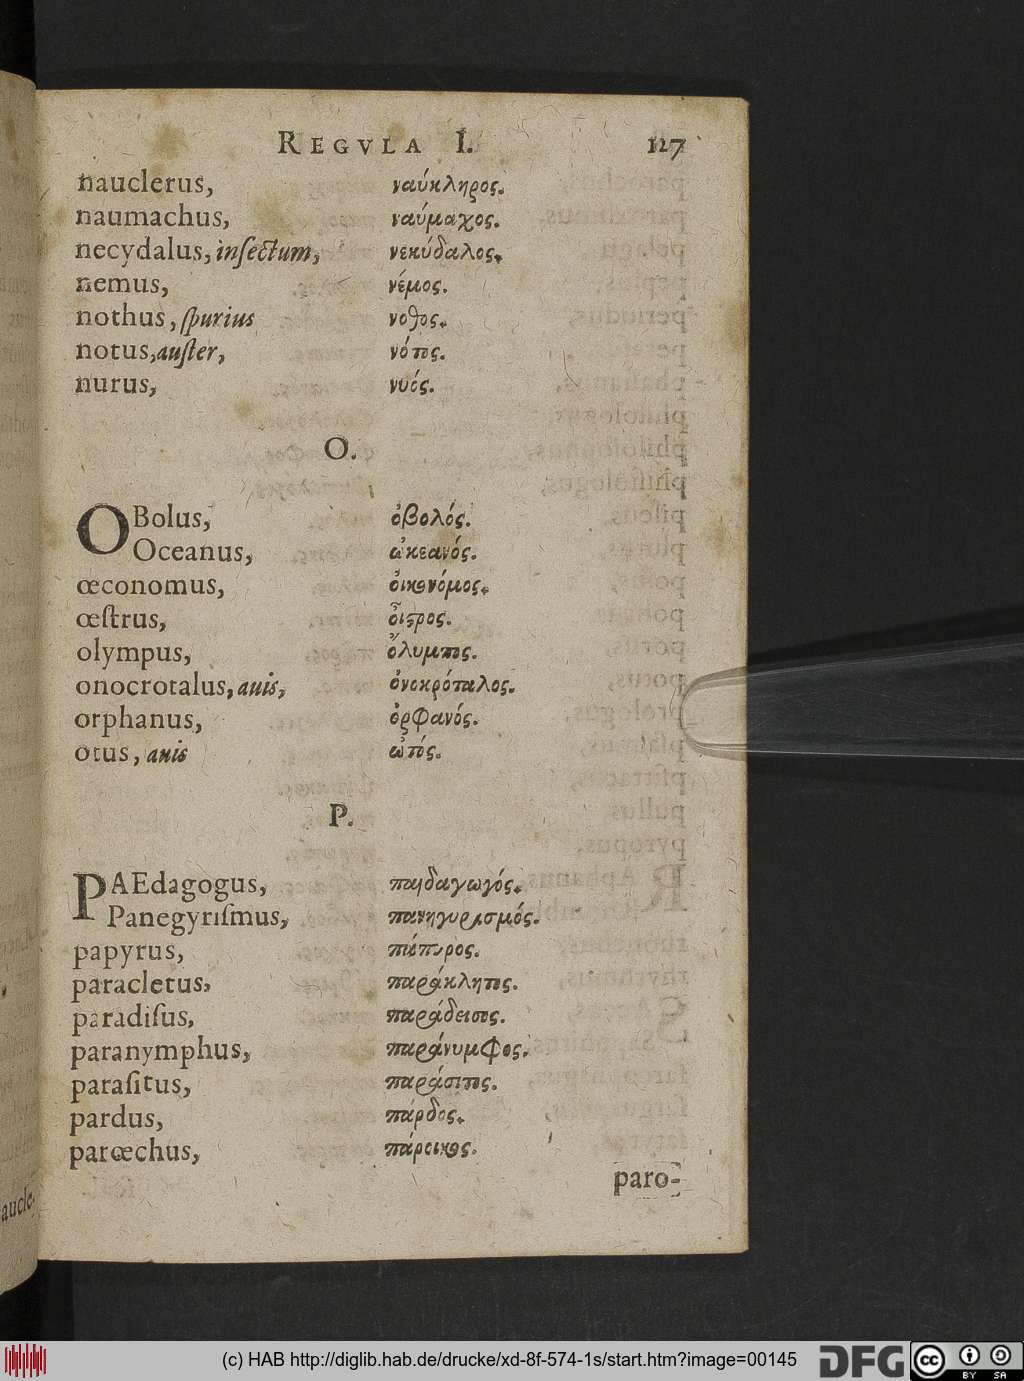 REGVLA I. 127
nauclerus, ναύκληρος.
naumachus, ναύμαχος.
necydalus, inſectum, νεκύδαλος.
nemus, νέμος.
nothus, ſpurius νοθος.
notus, auſter, νότος.
nurus, νυός.
O.
OBolus, ὀβολός.
Oceanus, ὠκεανός.
œconomus, ὀικονόμος.
œſtrus, οἶστρος.
olympus, ὄλυμπος.
onocrotalus, auis, ὀνοκρόταλος.
orphanus, ὀρφανός.
otus, auis ὠτός.
P.
PAEdagogus, παιδαγωγός.
Panegyriſmus, πανηγυρισμός.
papyrus, πάπυρος.
paracletus, παράκλητος.
paradiſus, παράδεισος.
paranymphus, παράνυμφος.
paraſitus, παράσιτος.
pardus, πάρδος.
parœchus, πάροικος.
paro-
aucle-
(c) HAB http://diglib.hab.de/drucke/xd-8f-574-1s/start.htm?image=00145 DFG cc BY SA